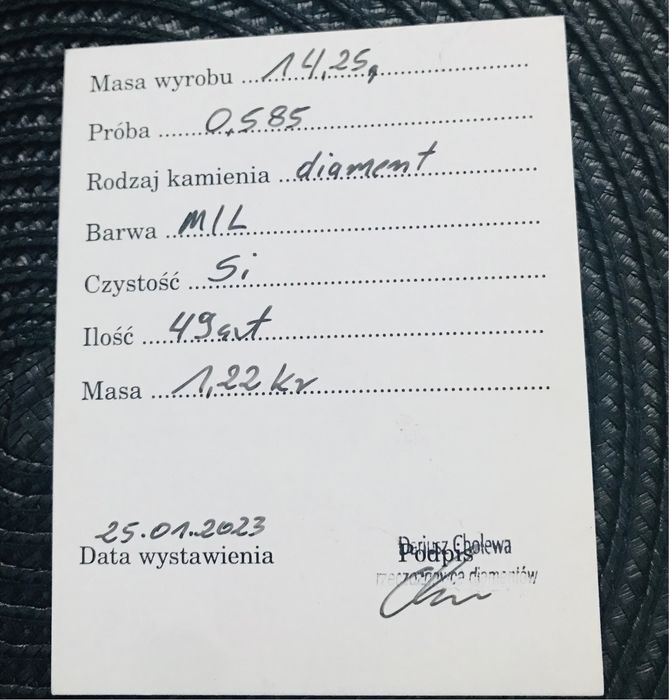 Masa wyrobu 14,25g
Próba 0,585
Rodzaj kamienia diament
Barwa M/L
Czystość Si
Ilość 49szt
Masa 1,22 kr
25.01.2023
Data wystawienia
Dariusz Cholewa
Podpis
rzeczoznawca diamentów